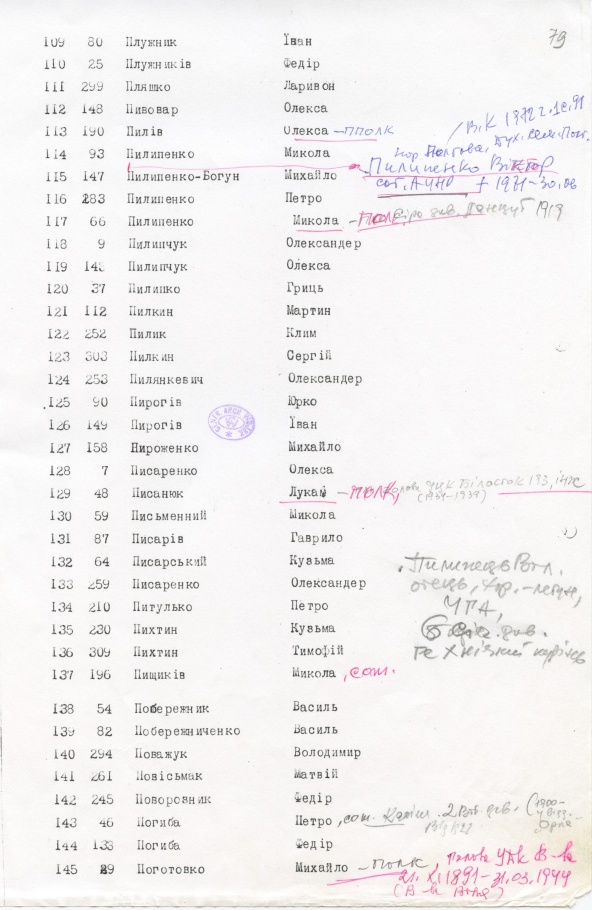 79
109 80 Плужник Іван
110 25 Плужників Федір
111 299 Пляшко Ларивон
112 148 Пивовар Олекса
113 190 Пилів Олекса – ППОЛК
114 93 Пилипенко Микола
Пилипенко Віктор
115 147 Пилипенко-Богун Михайло
сот. АУНР + 1971-30.08
116 283 Пилипенко Петро
117 66 Пилипенко Микола – ПОЛК, 1919
118 9 Пилипчук Олександер
119 143 Пилипчук Олекса
120 37 Пилипко Гриць
121 112 Пилкин Мартин
122 252 Пилик Клим
123 303 Пилкин Сергій
124 253 Пилянкевич Олександер
125 90 Пирогів Юрко
126 149 Пирогів Іван
127 158 Пироженко Михайло
128 7 Писаренко Олекса
129 48 Писанюк Лукай – ПОЛК, голова УЦК Білосток
(1939)
130 59 Письменний Микола
131 87 Писарів Гаврило
132 64 Писарський Кузьма
133 259 Писаренко Олександер
134 210 Питулько Петро
УПА,
135 230 Пихтин Кузьма
136 309 Пихтин Тимофій
137 196 Пищиків Микола, сот.
138 54 Побережник Василь
139 82 Побережниченко Василь
140 294 Поважук Володимир
141 261 Повісьмак Матвій
142 245 Поворозник Федір
143 46 Погиба Петро, сот.
144 133 Погиба Федір
145 29 Поготовко Михайло – ПОЛК, голова
21.XI.1891-31.03.1944